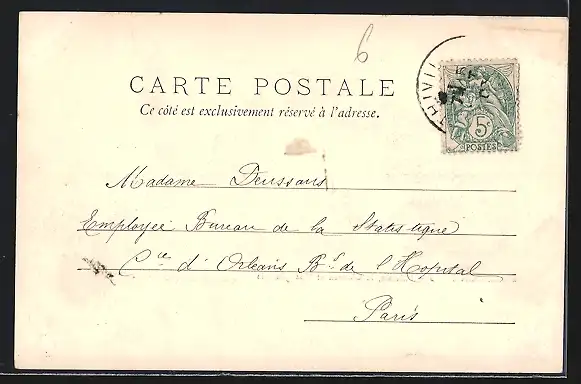 6
CARTE POSTALE
Ce côté est exclusivement réservé à l'adresse.
THIVI
5c
POSTES
Madame Deussans
Employée Bureau de la Statistique
Cie d'Orléans Bd de l'Hopital
Paris